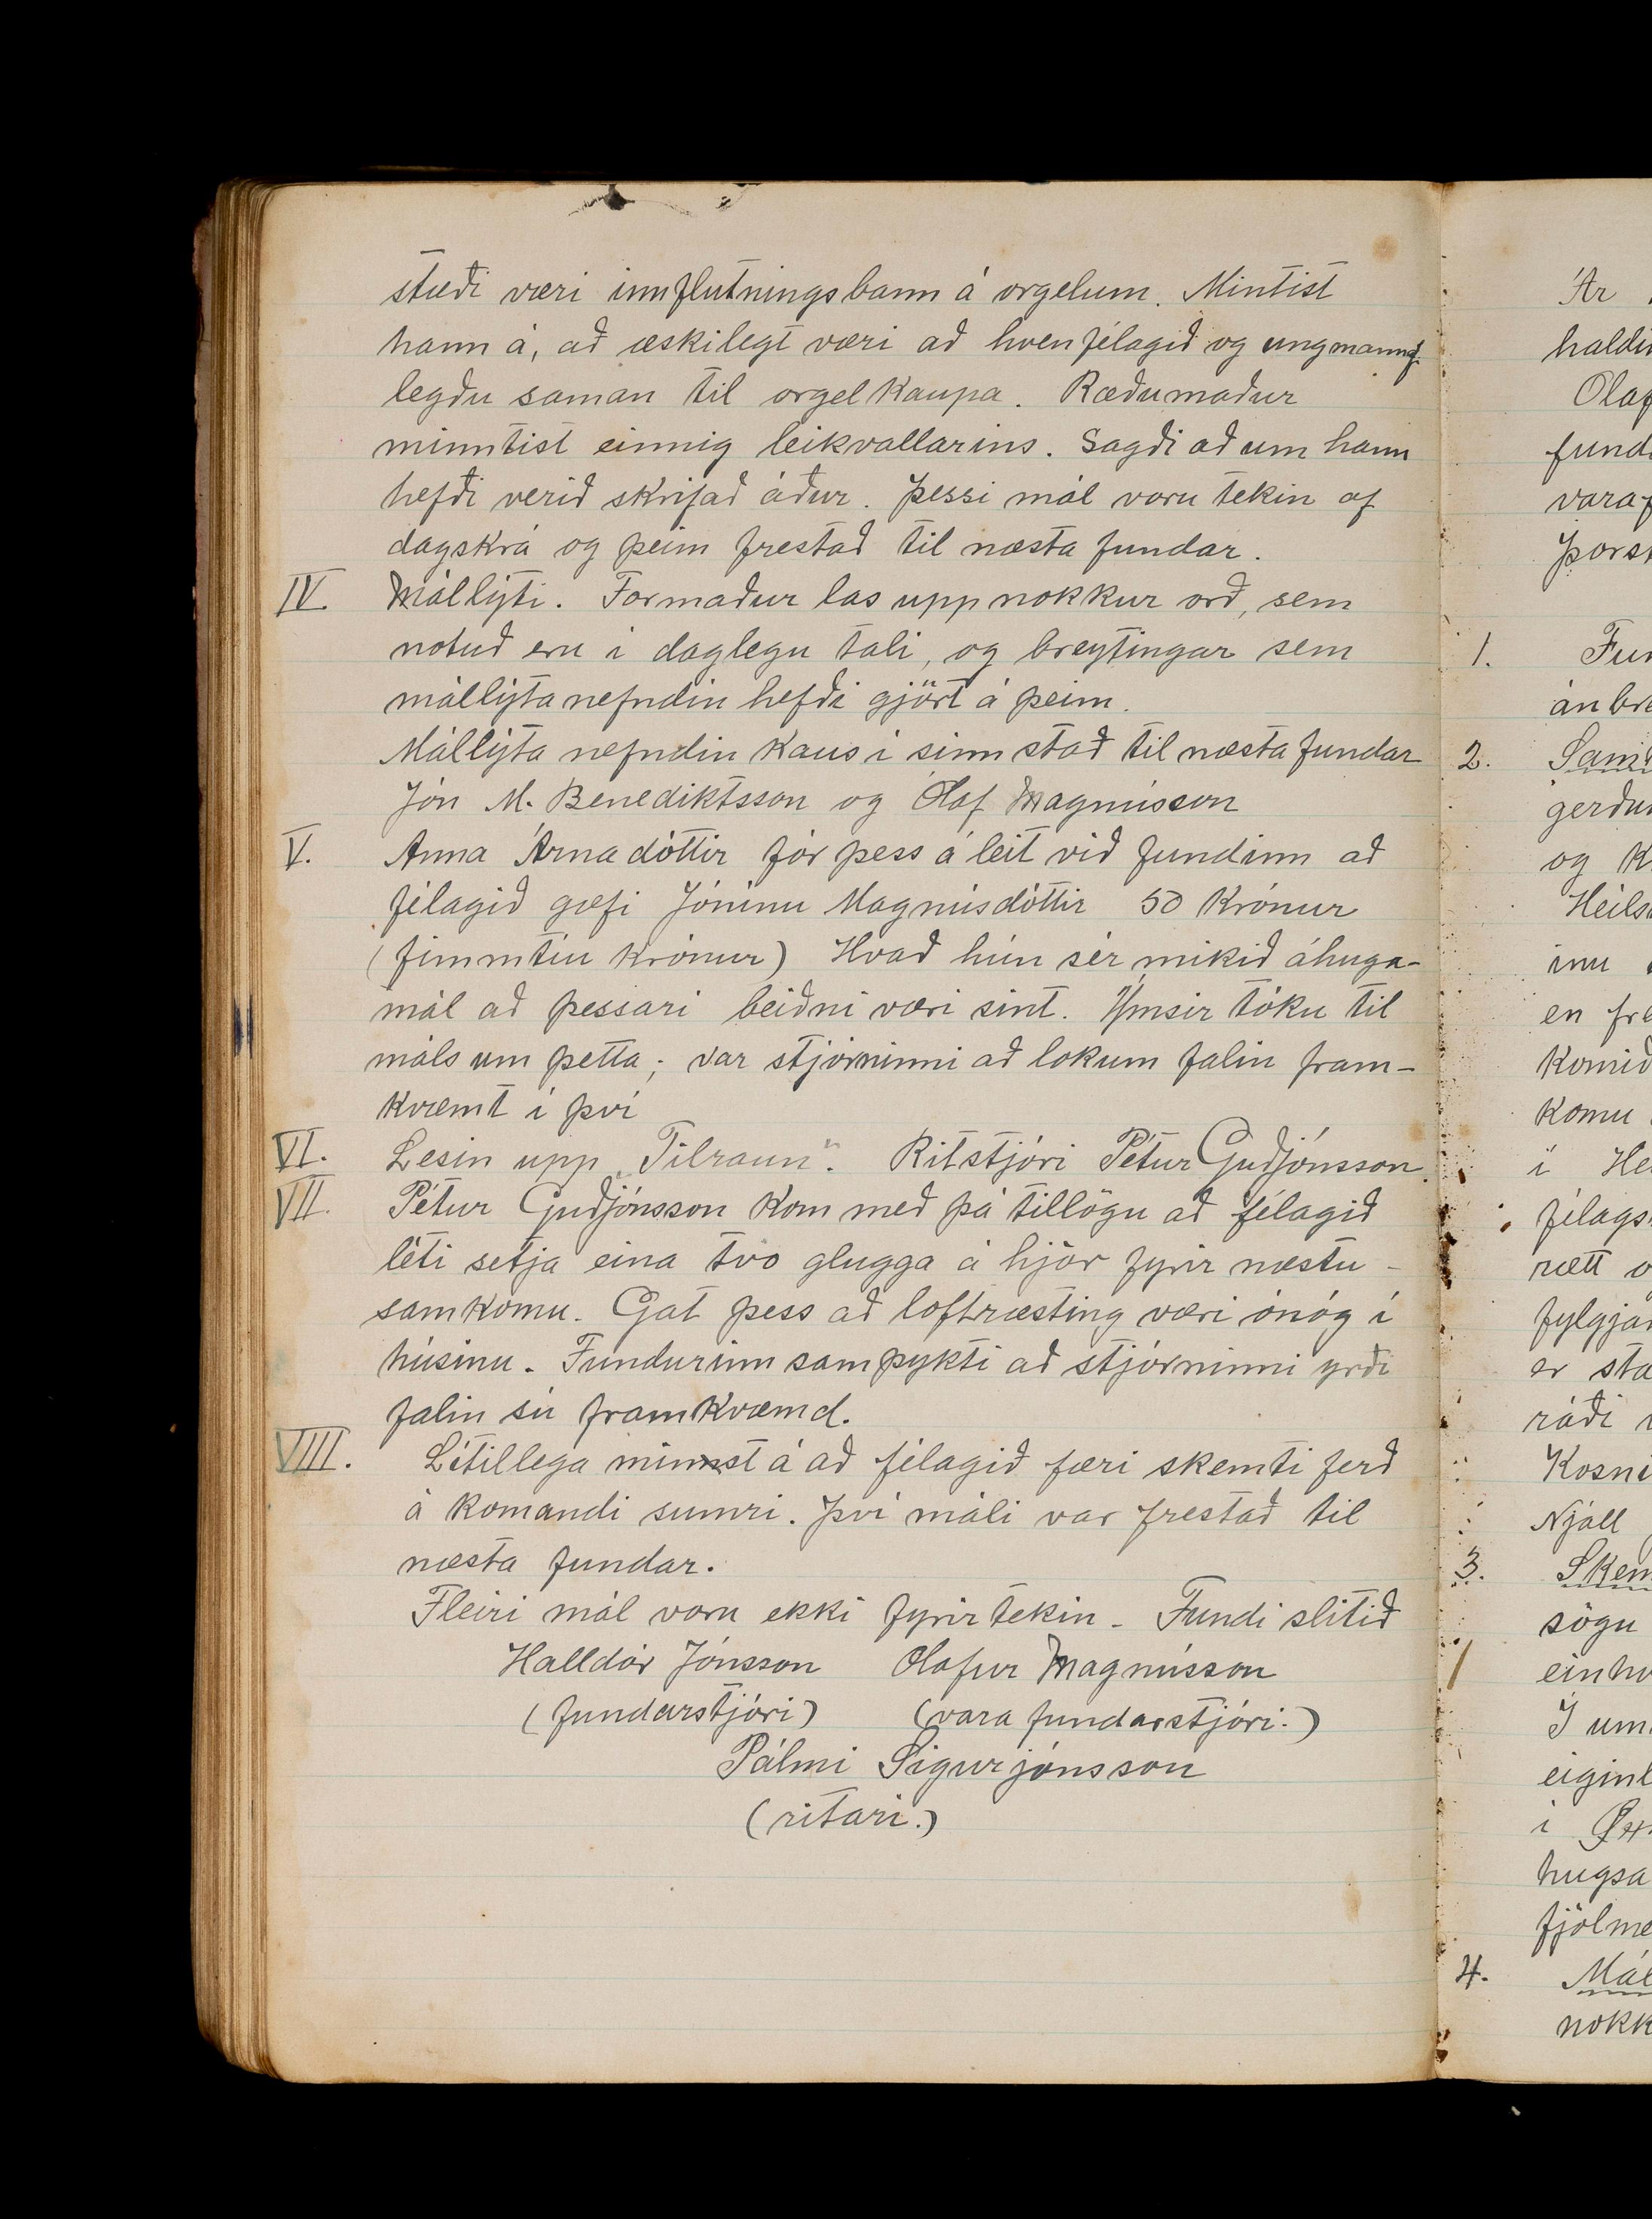 stæði væri innflutningsbann á orgelum. Mintist
hann á, að æskilegt væri að kvenfélagið og ungmannf.
legðu saman til orgelkaupa. Ræðumaður
minntist einnig leikvallarins. Sagði að um hann
hefði verið skrifað áður. Þessi mál voru tekin af
dagskrá og þeim frestað til næsta fundar.
IV. Mállýti. Formaður las upp nokkur orð, sem
notuð eru í daglegu tali, og breytingar sem
mállýtanefndin hefði gjört á þeim.
Mállýta nefndin kaus í sinn stað til næsta fundar
Jón M. Benediktsson og Ólaf Magnússon
V. Anna Árnadóttir fór þess á leit við fundinn að
félagið gæfi Jónínu Magnúsdóttir 50 krónur
(fimmtíu krónur) Kvað hún sér mikið áhuga-
mál að þessari beiðni væri sint. Ýmsir tóku til
máls um þetta; var stjórninni að lokum falin fram-
kvæmt í því
VI. Lesin upp „Tilraun". Ritstjóri Pétur Guðjónsson.
VII. Pétur Guðjónsson kom með þá tillögu að félagið
léti setja eina tvo glugga á hjör fyrir næstu -
samkomu. Gat þess að loftræsting væri ónóg í
húsinu. Fundurinn samþykti að stjórninni yrði
falin sú framkvæmd.
VIII. Lítillega minnst á að félagið færi skemti ferð
á komandi sumri. Því máli var frestað til
næsta fundar.
Fleiri mál voru ekki fyrir tekin - Fundi slitið
Halldór Jónsson Ólafur Magnússon
(fundarstjóri) (vara fundarstjóri.)
Pálmi Sigurjónsson
(ritari.)
Ár
1.
2.
og
Heils
inu
en
komu
í
rætt
er
ráði
Njáll
3.
sögu
Í
í
hugsa
4.